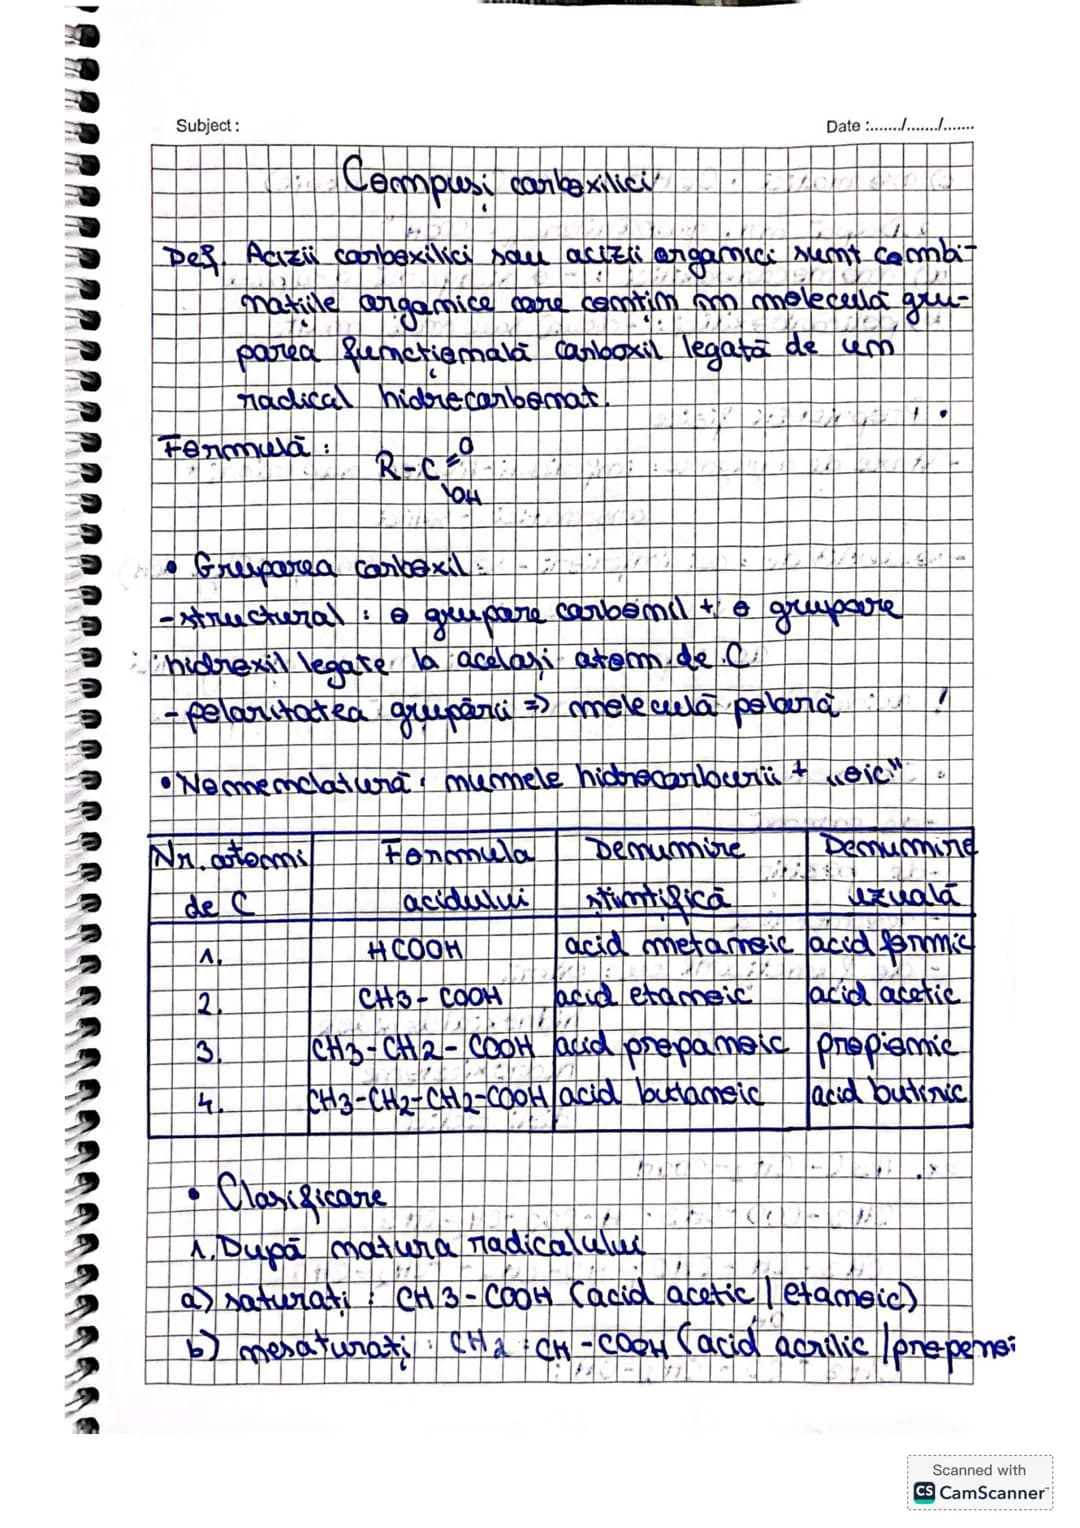 Subject :
Date :......./......./.......
Compuși carboxilici
Def. Acizii carboxilici sau acizii organici sunt combi-
națiile organice care conțin în moleculă gru-
parea funcțională carboxil legată de un
radical hidrocarbonat.
Formulă :
R-C=O
\OH
• Gruparea carboxil :
- structural : o grupare carbonil + o grupare
hidroxil legate la același atom de C
- polaritatea grupării => moleculă polară !
• Nomenclatură : numele hidrocarburii + „oic"
Nr. atomi de C | Formula acidului | Denumire științifică | Denumire uzuală
1. | HCOOH | acid metanoic | acid formic
2. | CH3-COOH | acid etanoic | acid acetic
3. | CH3-CH2-COOH | acid propanoic | propionic
4. | CH3-CH2-CH2-COOH | acid butanoic | acid butiric
• Clasificare
1. După natura radicalului
a) saturați : CH3-COOH (acid acetic / etanoic)
b) nesaturați : CH2=CH-COOH (acid acrilic / propenoi
Scanned with
CS CamScanner